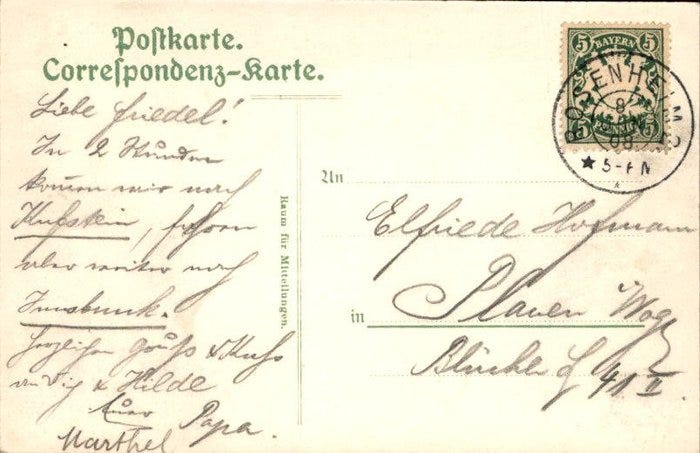 Postkarte.
Correspondenz-Karte.
Liebe Friedel!
In 2 Stunden
kommen wir nach
Kufstein, fahren
aber weiter nach
Innsbruck.
Herzlichen Gruß & Kuß
an Dich & Hilde
Euer Papa.
Marthel
Raum für Mitteilungen.
5 BAYERN 5
PFENNIG
ROSENHEIM
8
08
5-6 N
An
Elfriede Hofmann
in Plauen Vogtl
Blücher
41 II